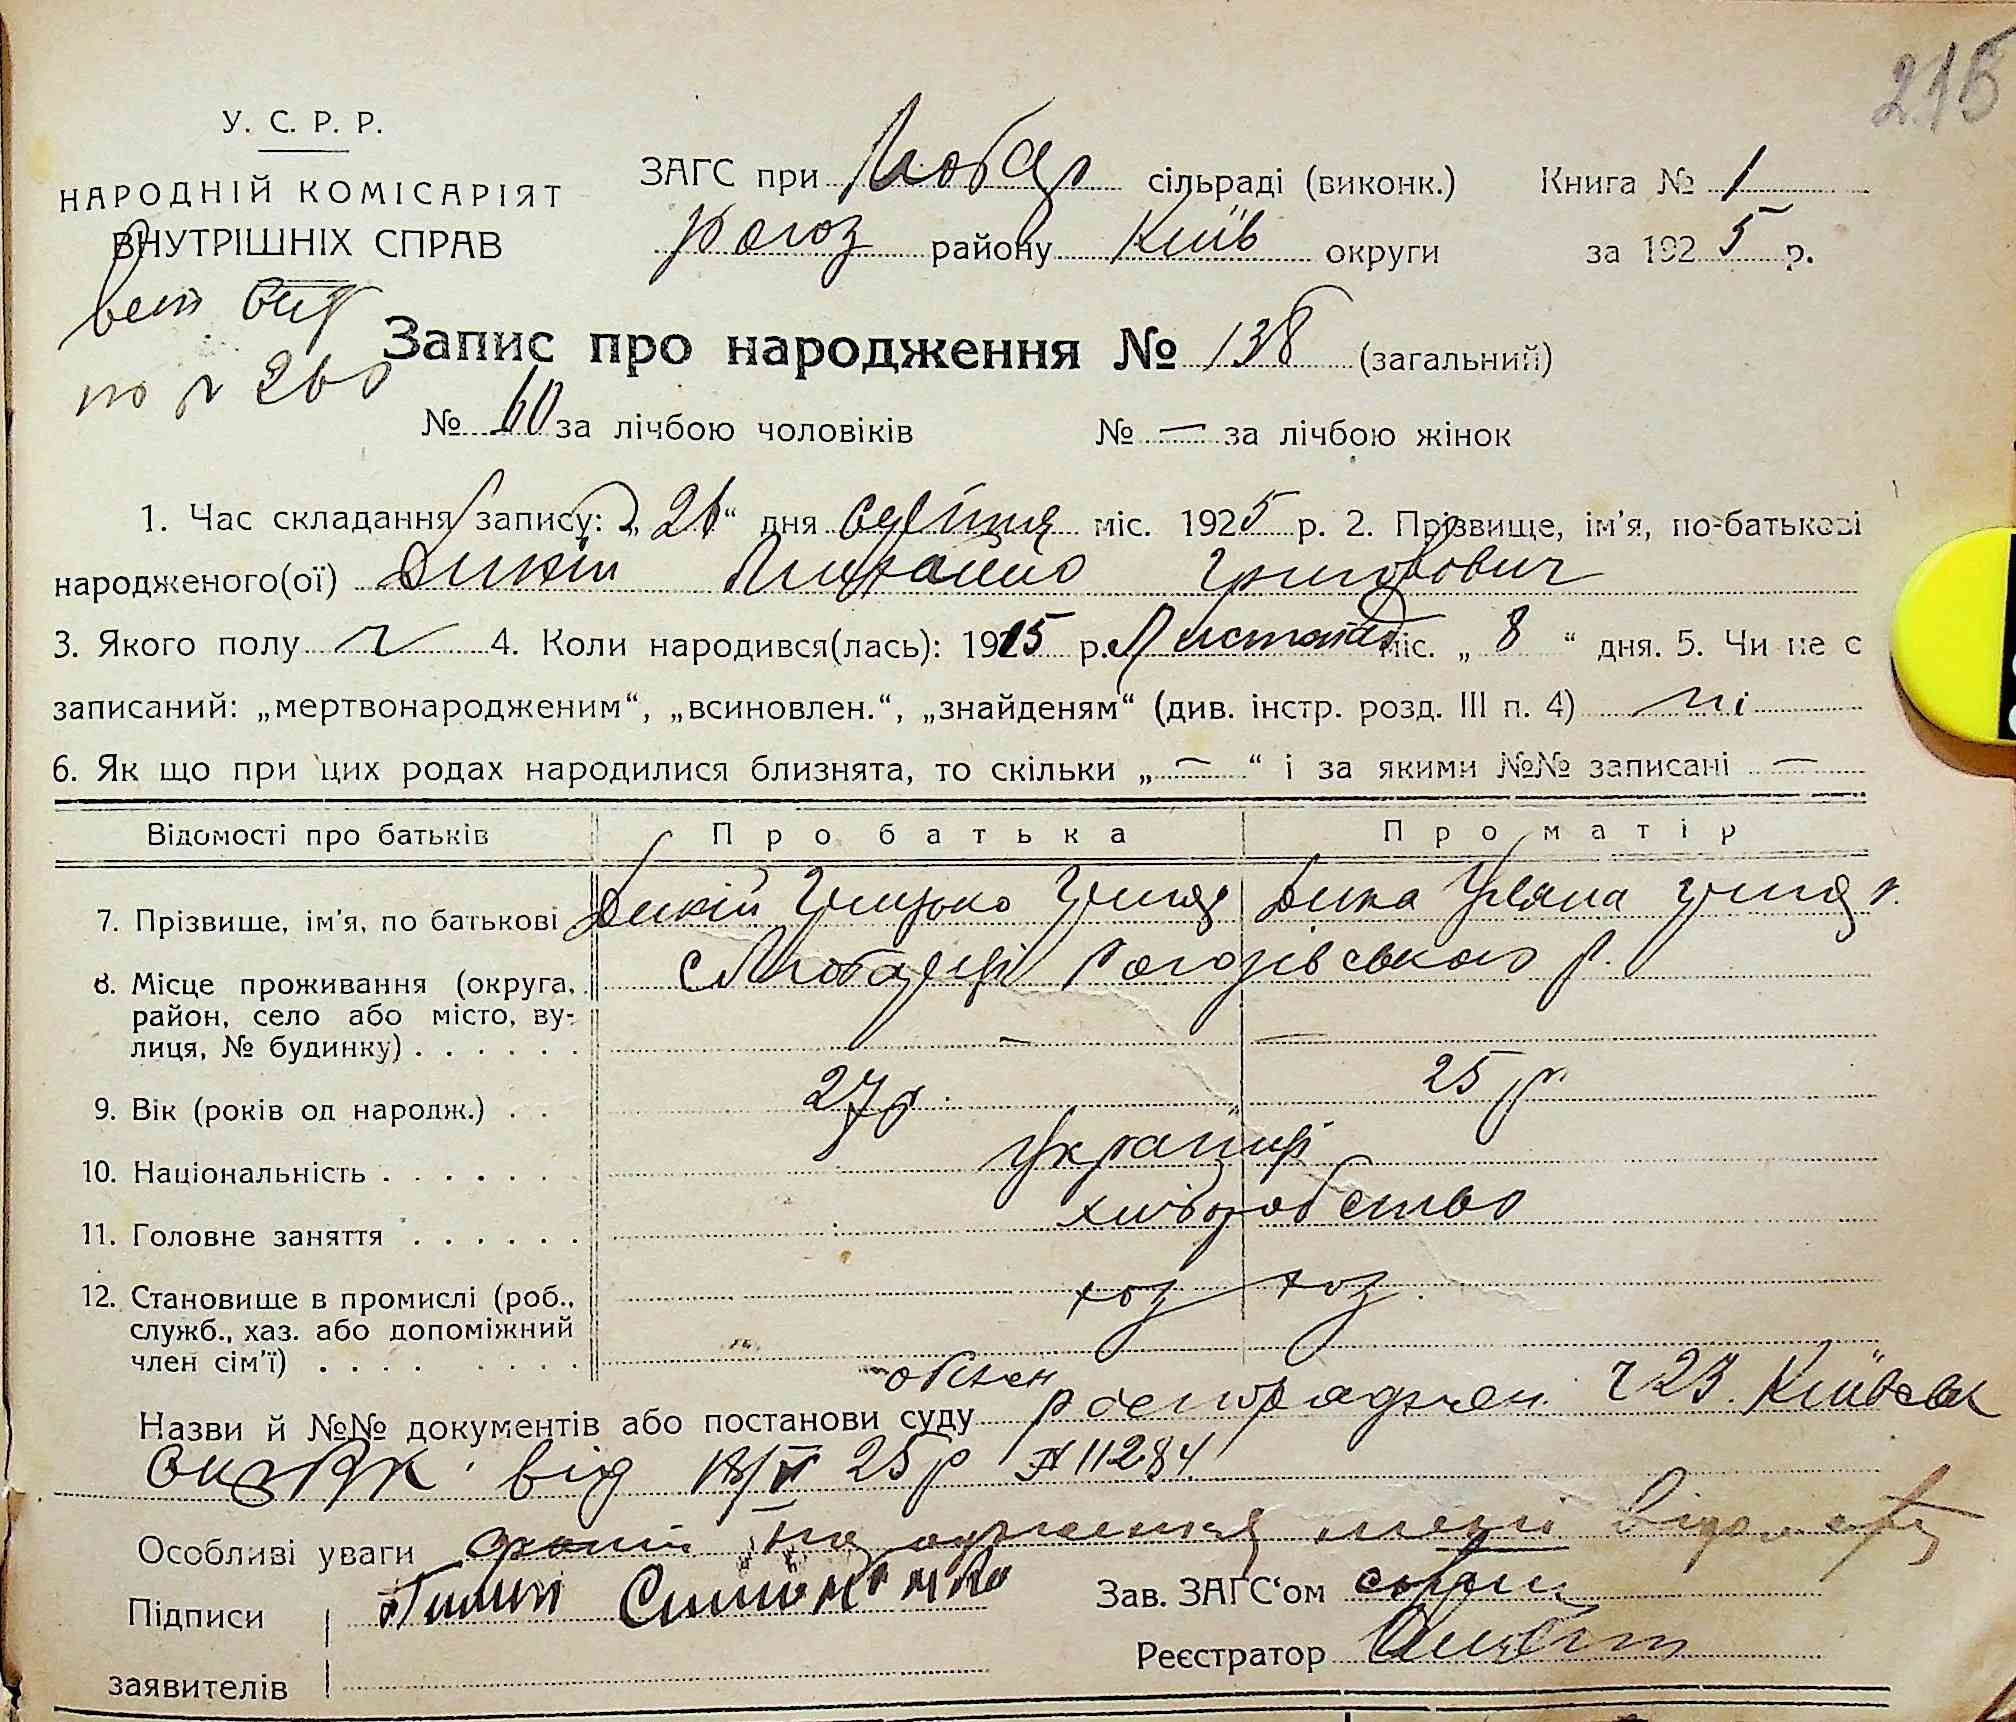 215
У. С. Р. Р.
НАРОДНІЙ КОМІСАРІЯТ
ВНУТРІШНІХ СПРАВ
ЗАГС при Любар сільраді (виконк.) Книга № 1
Рогоз району Київ округи за 1925 р.
по № 260
Запис про народження № 138 (загальний)
№ 60 за лічбою чоловіків № — за лічбою жінок
1. Час складання запису: „26“ дня серпня міс. 1925 р. 2. Прізвище, ім'я, по-батькові
народженого(ої) Дикій Михайло Григорович
3. Якого полу ч 4. Коли народився(лась): 1915 р. Листопад міс. „ 8 “ дня. 5. Чи не є
записаний: „мертвонародженим“, „всиновлен.“, „знайденям“ (див. інстр. розд. III п. 4) ні
6. Як що при цих родах народилися близнята, то скільки „ — “ і за якими №№ записані —
Відомості про батьків Про батька Про матір
7. Прізвище, ім'я, по батькові Дикій Грицько Григор Дика Уляна Григор.
8. Місце проживання (округа, район, село або місто, вулиця, № будинку) с Любарці Рогозівського р.
— —
9. Вік (років од народж.) 27 р. 25 р.
10. Національність Українці
11. Головне заняття хліборобство
12. Становище в промислі (роб., служб., хаз. або допоміжний член сім'ї) хоз хоз.
Назви й №№ документів або постанови суду роспораджен. ч 23. Київськ
ОкрВК від 18/V 25 р № 11284
Особливі уваги
Підписи Симоненко Зав. ЗАГС'ом
заявителів Реєстратор